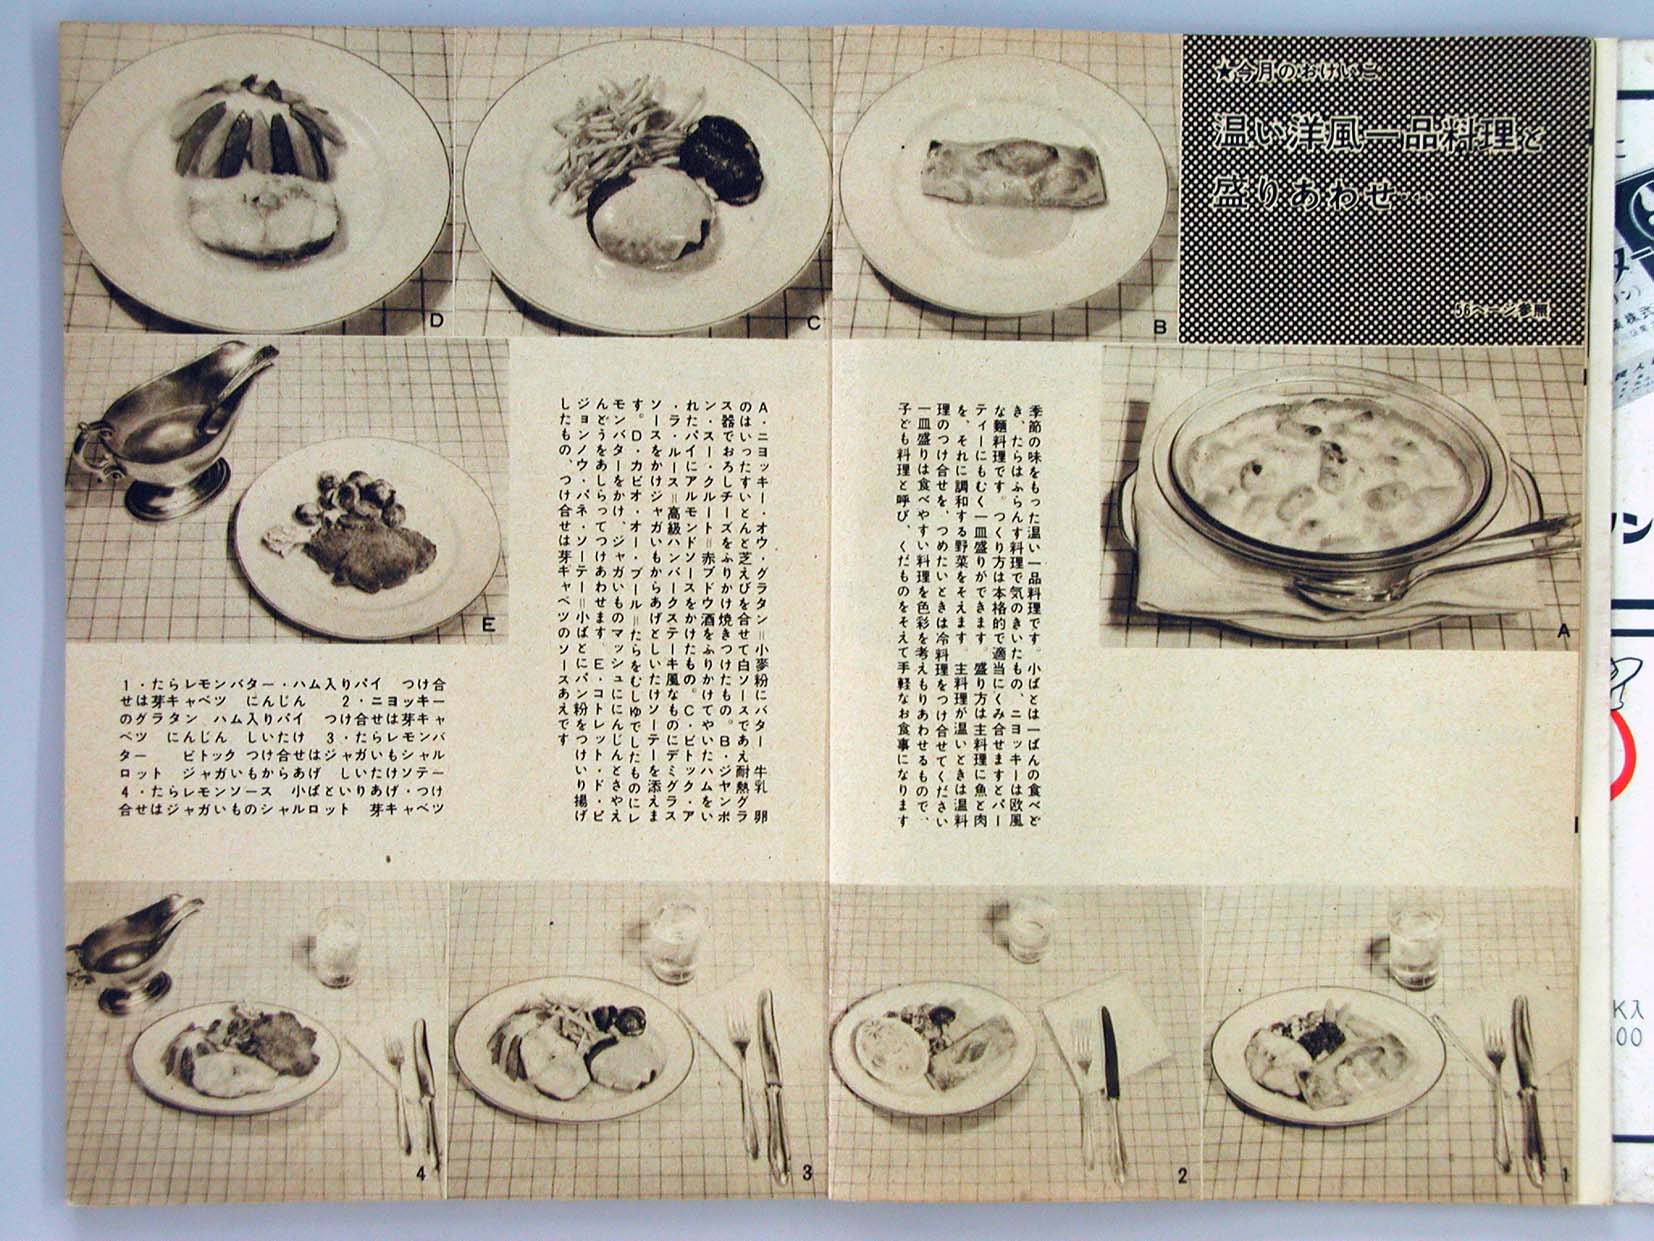 ★今月のおけいこ
温い洋風一品料理と
盛りあわせ…
56ページ参照
A
B
C
D
E
季節の味をもった温い一品料理です。小ばとは一ばんの食べど
き、たらはふらんす料理で気のきいたもの、ニヨッキーは欧風
な麺料理です。つくり方は本格的で適当にくみ合せますとパー
ティーにもむく一皿盛りができます。盛り方は主料理に魚と肉
を、それに調和する野菜をそえます。主料理が温いときは温料
理のつけ合せを、つめたいときは冷料理をつけ合せてください
一皿盛りは食べやすい料理を色彩を考えもりあわせるもので、
子ども料理と呼び、くだものをそえて手軽なお食事になります
A・ニヨッキー・オウ・グラタン＝小麥粉にバター 牛乳 卵
のはいったすいとんと芝えびを合せて白ソースであえ耐熱グラ
ス器でおろしチーズをふりかけ焼きつけたもの。B・ジヤンボ
ン・スー・クルート＝赤ブドウ酒をふりかけてやいたハムをい
れたパイにアルモンドソースをかけたもの。C・ビトック・ア
・ラ・ルース＝高級ハンバークステーキ風なものにデミグラス
ソースをかけジャガいもからあげとしいたけソーテーを添えま
す。D・カビオ・オー・ブール＝たらをむしゆでしたものにレ
モンバターをかけ、ジャガいものマッシュににんじんとさやえ
んどうをあしらってつけあわせます。E・コトレット・ド・ピ
ジョンノウ・パネ・ソーテー＝小ばとにパン粉をつけいり揚げ
したもの、つけ合せは芽キャベツのソースあえです
1・たらレモンバター・ハム入りパイ つけ合
せは芽キャベツ にんじん 2・ニヨッキー
のグラタン ハム入りパイ つけ合せは芽キャ
ベツ にんじん しいたけ 3・たらレモンバ
ター ビトック つけ合せはジャガいもシャル
ロット ジャガいもからあげ しいたけソテー
4・たらレモンソース 小ばといりあげ・つけ
合せはジャガいものシャルロット 芽キャベツ
1
2
3
4
K入
00